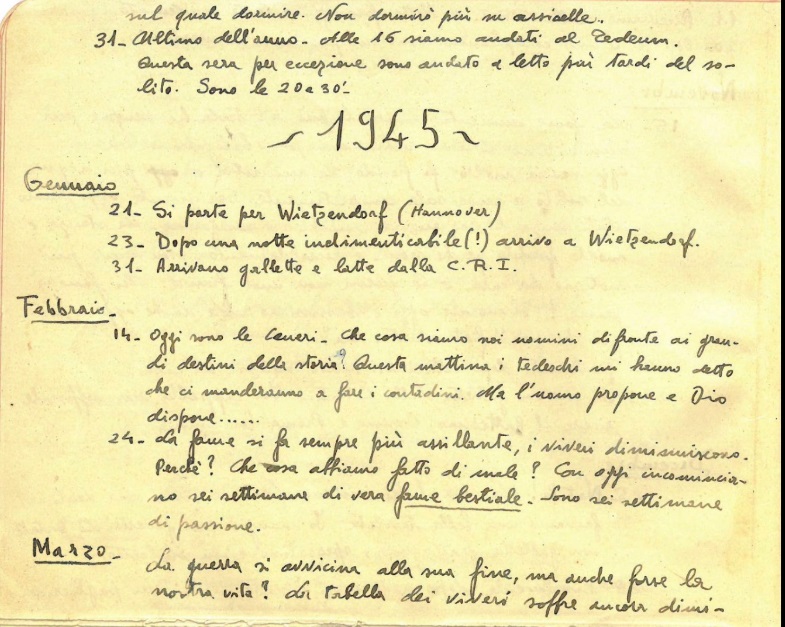 sul quale dormire. Non dormirò più su assicelle.
31- Ultimo dell'anno. Alle 16 siamo andati al Tedeum.
Questa sera per eccezione sono andato a letto più tardi del so-
lito. Sono le 20 e 30'-
~ 1945 ~
Gennaio
21- Si parte per Wietzendorf (Hannover)
23- Dopo una notte indimenticabile (!) arrivo a Wietzendorf.
31- Arrivano gallette e latte dalla C.R.I.
Febbraio-
14- Oggi sono le Ceneri- Che cosa siamo noi uomini di fronte ai gran-
di destini della storia? Questa mattina i tedeschi mi hanno detto
che ci manderanno a fare i contadini. Ma l'uomo propone e Dio
dispone......
24- La fame si fa sempre più assillante, i viveri diminuiscono.
Perchè? Che cosa abbiamo fatto di male? Con oggi incomincia-
no sei settimane di vera fame bestiale. Sono sei settimane
di passione.
Marzo-
La guerra si avvicina alla sua fine, ma anche forse la
nostra vita? La tabella dei viveri soffre ancora dimi-